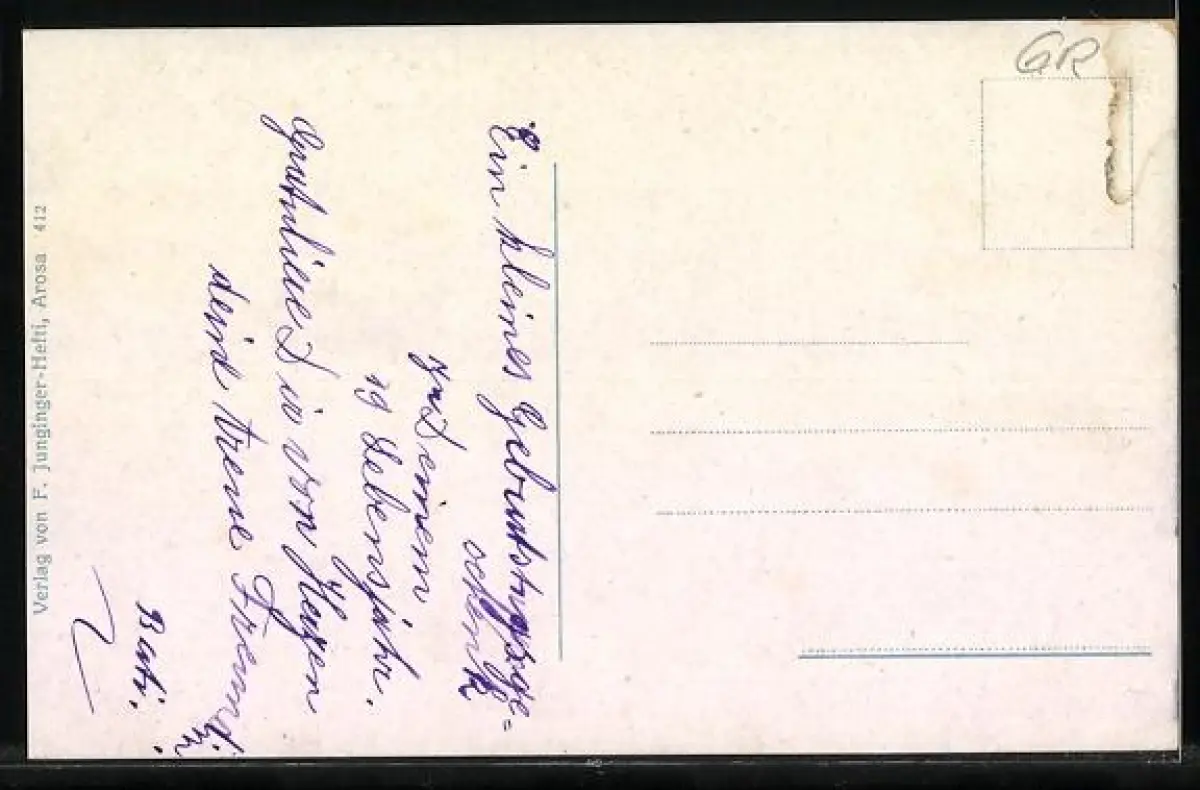 GR
Ein kleines Geburtstagsge=
schenk
zu Deinem
19 Lebensjahr.
Gratuliere Dir von Herzen
deine treue Freundin
Verlag von F. Junginger-Hefti, Arosa 412